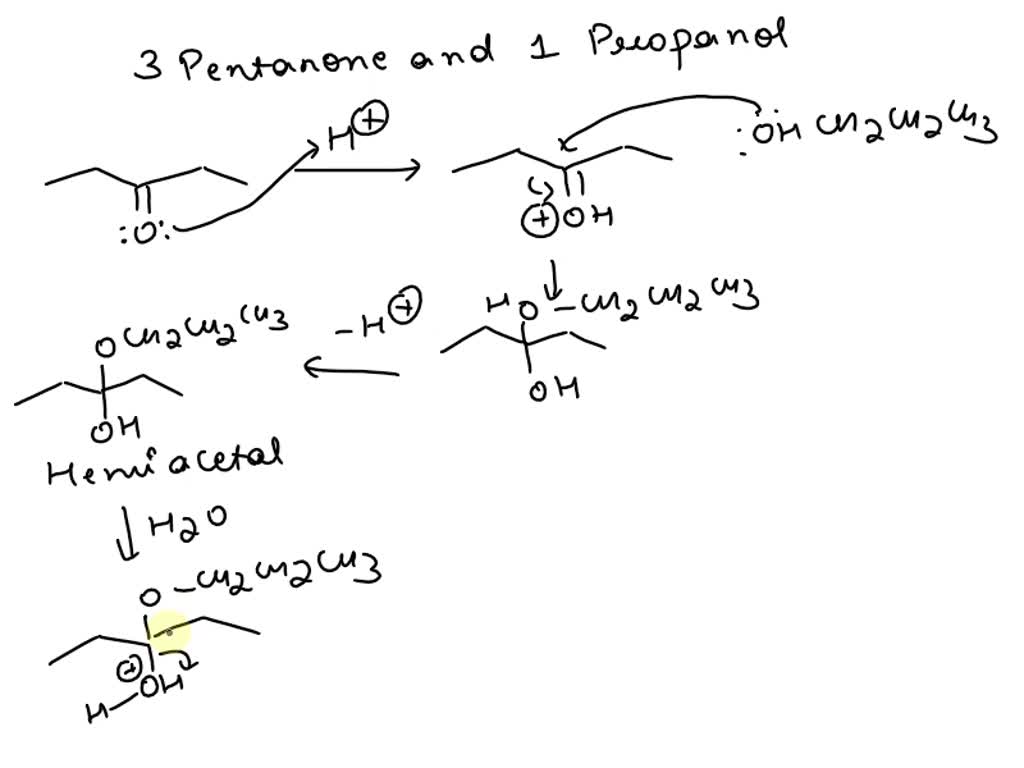 3 Pentanone and 1 Propanol
H⊕
:O:
⊕OH
:ÖH CH2CH2CH3
HO-CH2CH2CH3
OH
-H⊕
OCH2CH2CH3
OH
Hemiacetal
H2O
O-CH2CH2CH3
⊕
H-OH